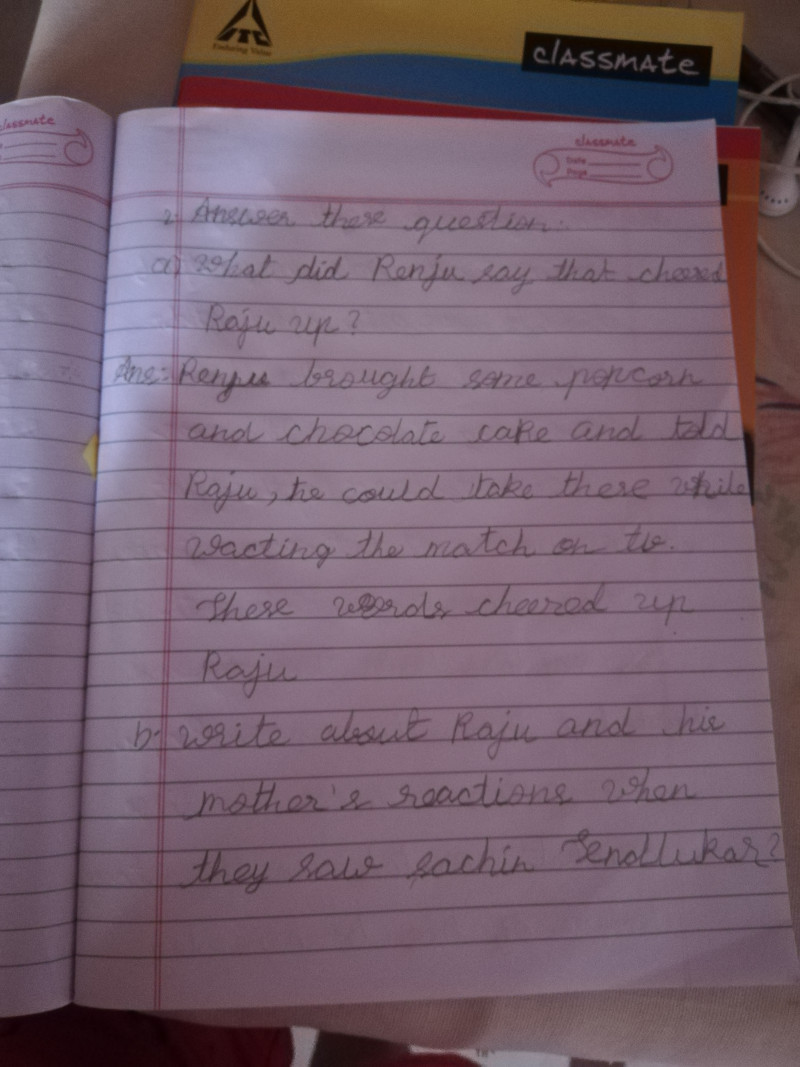 ITC
Enduring Value
classmate
classmate
classmate
Date
Page
2. Answer these question.
a) What did Renju say that cheered
Raju up?
Ans:- Renju brought some popcorn
and chocolate cake and told
Raju, he could take these while
wacting the match on tv.
These words cheered up
Raju
b. write about Raju and his
mother's reactions when
they saw sachin Tendlukar?